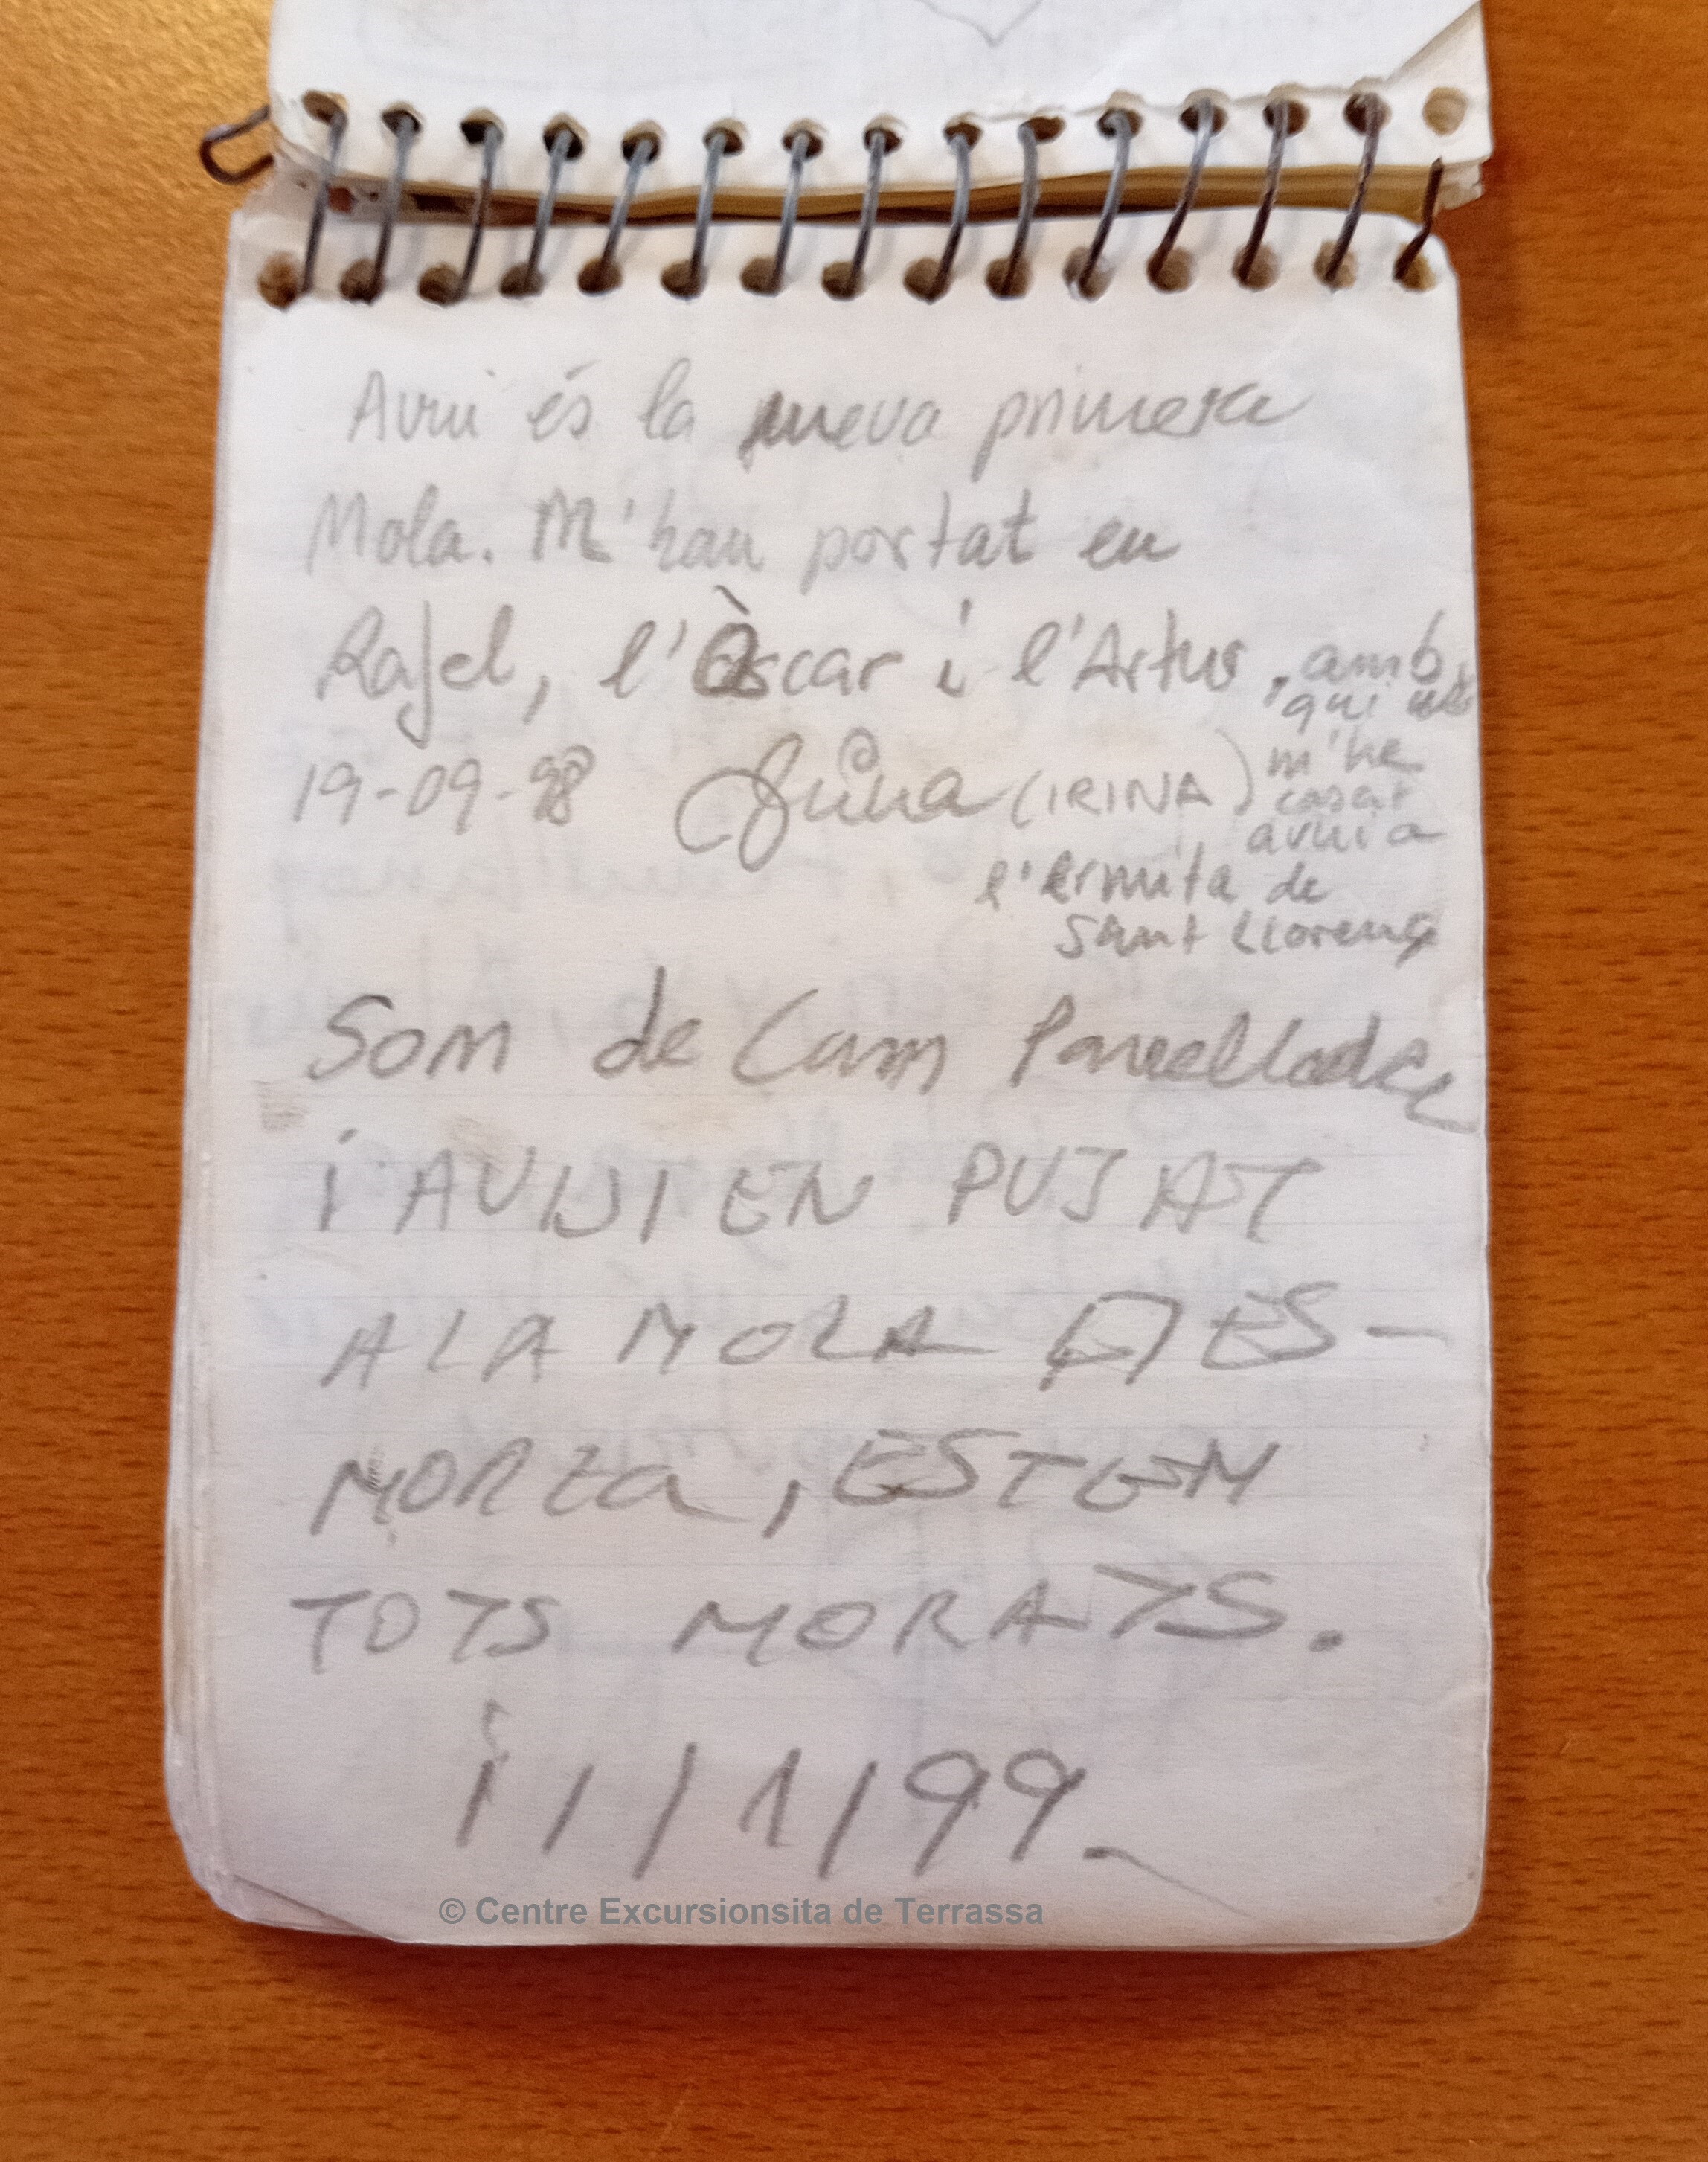 Avui és la meva primera
Mola. M'han portat en
Rafel, l'Òscar i l'Artur, amb
qui
m'he
casat
avui a
l'ermita de
Sant Llorenç
19-09-98 Irina (IRINA)
Som de Cam Parellada
i AVUI EN PUJAT
A LA MOLA A ES-
MORZa, ESTEM
TOTS MORATS.
11/1/99
© Centre Excursionsita de Terrassa